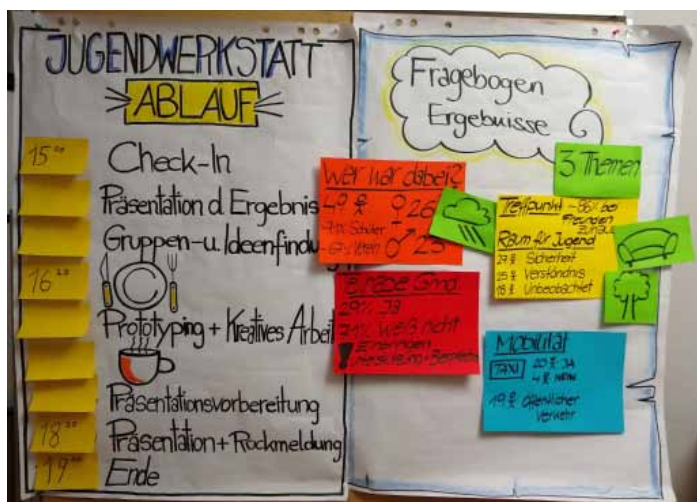 JUGENDWERKSTATT
ABLAUF
15⁰⁰
Check-In
Präsentation d. Ergebnis
Gruppen-u. Ideenfindung
16
Prototyping + Kreatives Arbeit
Präsentationsvorbereitung
18³⁰
Präsentation + Rückmeldung
19⁰⁰
Ende
Fragebogen
Ergebnisse
3 Themen
Wer war dabei?
49
♀ 26
71% Schüler
♂ 23
Treffpunkt - 86% bei
Freunden
zuhause
Raum für Jugend
Sicherheit
Verständnis
Unbeobachtet
29% JA
71% weiß nicht
Mobilität
TAXI
20 JA
4 NEIN
19 öffentlicher
Verkehr